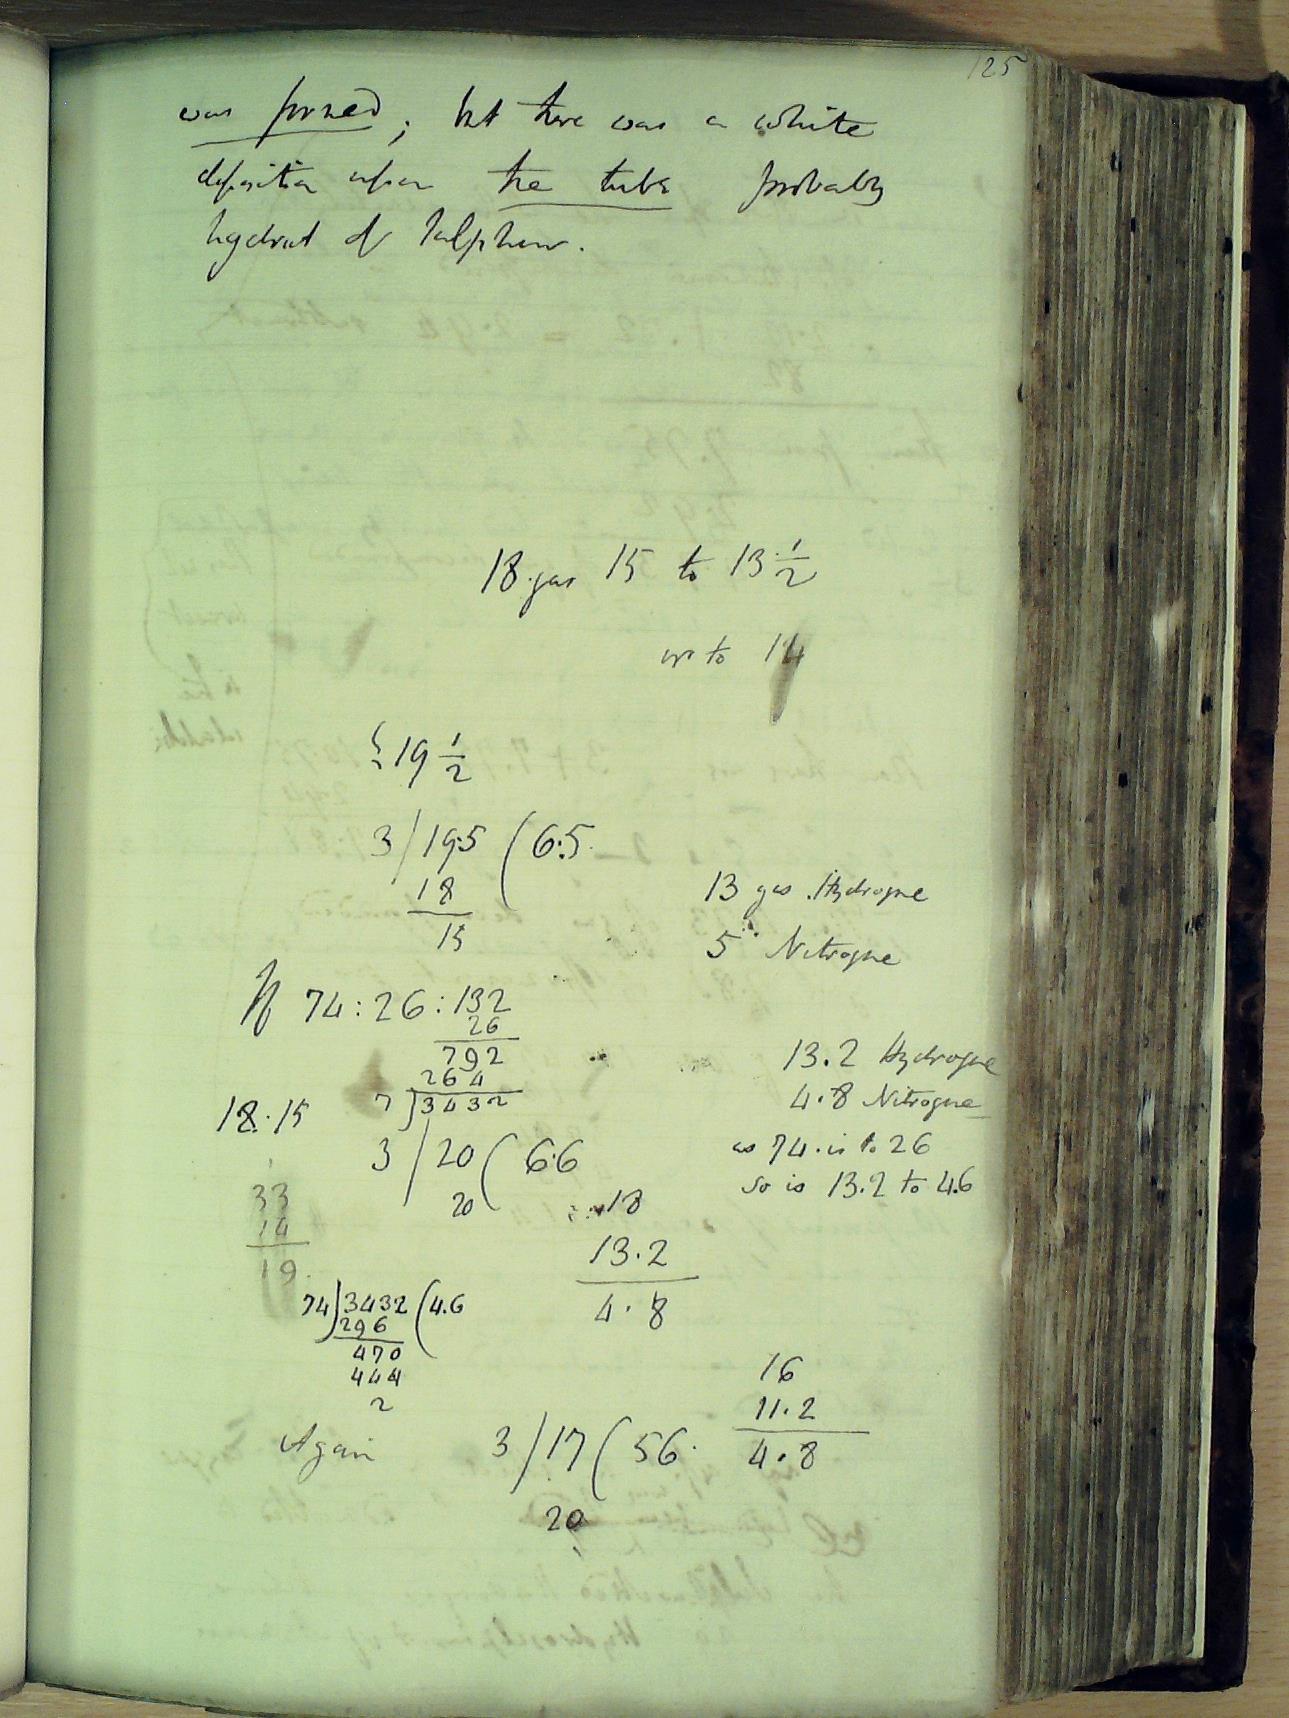 125
was formed; but there was a white
deposition upon the tube probably
hydrat of Sulphur.
18 gas 15 to 13 1/2
or to 14
19 1/2
3 / 19.5 ( 6.5
18
15
13 gas Hydrogne
5 Nitrogne
If 74 : 26 : 132
26
792
264
7 ) 3432
13.2 Hydrogne
4.8 Nitrogne
as 74 is to 26
so is 13.2 to 4.6
18.15
3 / 20 ( 6.6
20
33
14
19
18
13.2
4.8
74 ) 3432 ( 4.6
296
470
444
2
16
11.2
4.8
Again 3 / 17 ( 56
20